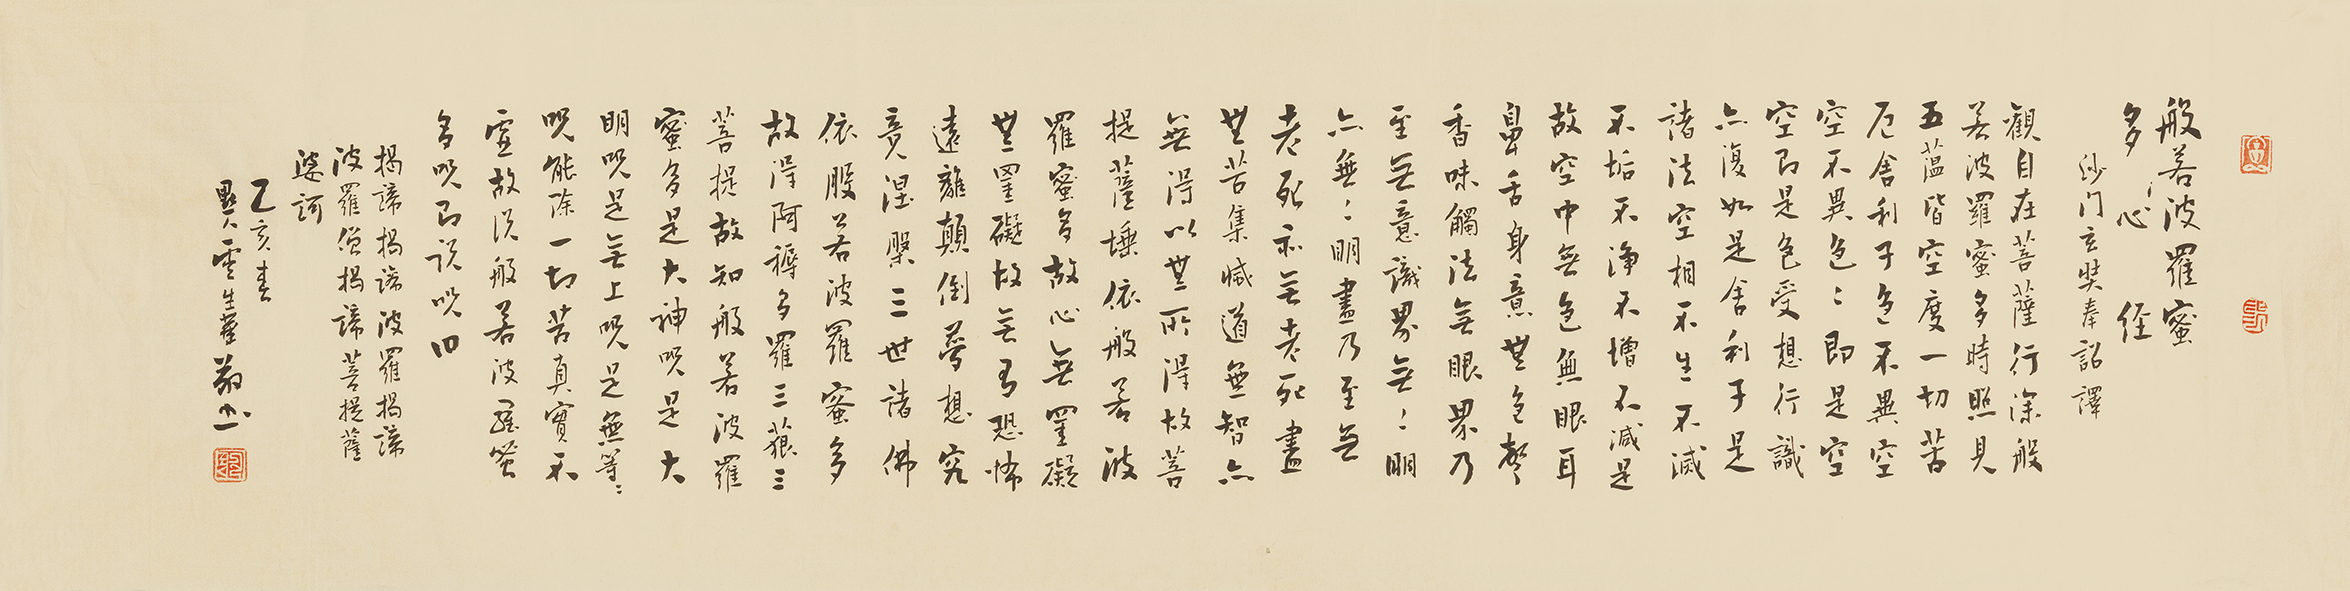 般若波羅蜜
多心經
沙门玄奘奉詔譯
觀自在菩薩行深般
若波羅蜜多時照見
五蕴皆空度一切苦
厄舍利子色不異空
空不異色〻即是空
空即是色受想行識
亦復如是舍利子是
諸法空相不生不滅
不垢不淨不增不減是
故空中無色無眼耳
鼻舌身意無色聲
香味觸法無眼界乃
至無意識界無〻明
亦無〻明盡乃至無
老死亦無老死盡
無苦集滅道無智亦
無得以無所得故菩
提薩埵依般若波
羅蜜多故心無罣礙
無罣礙故無有恐怖
遠離顛倒夢想究
竟涅槃三世諸佛
依般若波羅蜜多
故得阿耨多羅三藐三
菩提故知般若波羅
蜜多是大神咒是大
明咒是無上咒是無等〻
咒能除一切苦真實不
虛故說般若波羅蜜
多咒即說咒曰
揭諦揭諦波羅揭諦
波羅僧揭諦菩提薩
婆訶
乙亥春